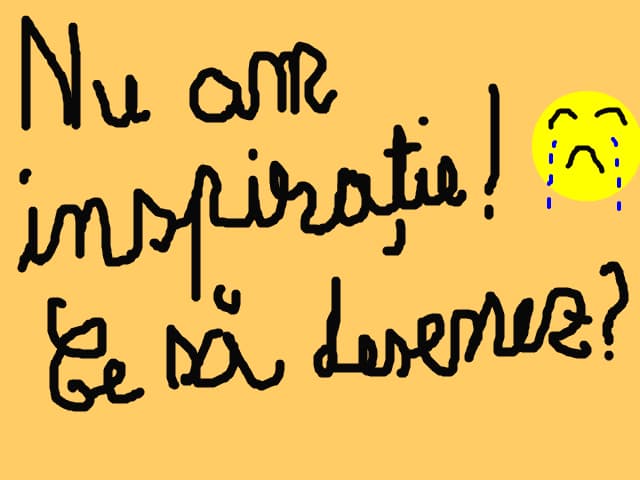 Nu am
inspirație!
Ce să desenez?